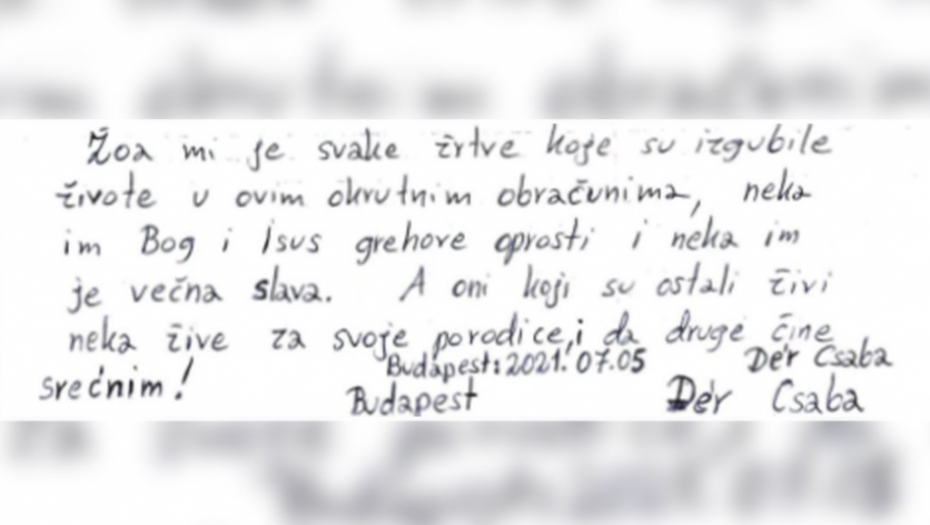 Žoa mi je svake žrtve koje su izgubile
živote u ovim okrutnim obračunima, neka
im Bog i Isus grehove oprosti i neka im
je večna slava. A oni koji su ostali živi
neka žive za svoje porodice, i da druge čine
srećnim!
Budapest: 2021. 07.05 Dér Csaba
Budapest Dér Csaba